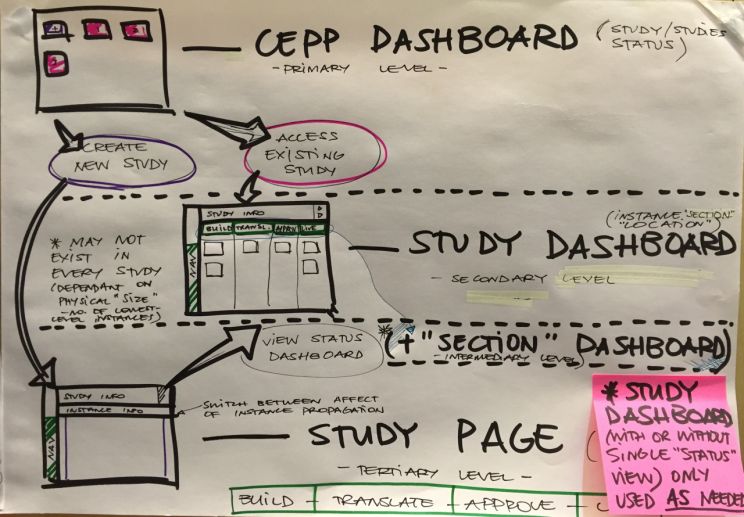 CEPP DASHBOARD
(STUDY/STUDIES
STATUS)
- PRIMARY LEVEL -
CREATE
NEW STUDY
ACCESS
EXISTING
STUDY
STUDY INFO
BUILD TRANSL.
NAV
(INSTANCE "SECTION"
"LOCATION")
STUDY DASHBOARD
- SECONDARY LEVEL
* MAY NOT
EXIST IN
EVERY STUDY
(DEPENDANT ON
PHYSICAL "SIZE"
- NO. OF LOWEST-
LEVEL INSTANCES)
VIEW STATUS
DASHBOARD
*(+ "SECTION" DASHBOARD)
- INTERMEDIARY LEVEL -
STUDY INFO
INSTANCE INFO
NAV
SWITCH BETWEEN AFFECT
OF INSTANCE PROPAGATION
STUDY PAGE (
- TERTIARY LEVEL -
BUILD - TRANSLATE - APPROVE -
* STUDY
DASHBOARD
(WITH OR WITHOUT
SINGLE "STATUS"
VIEW) ONLY
USED AS NEEDED